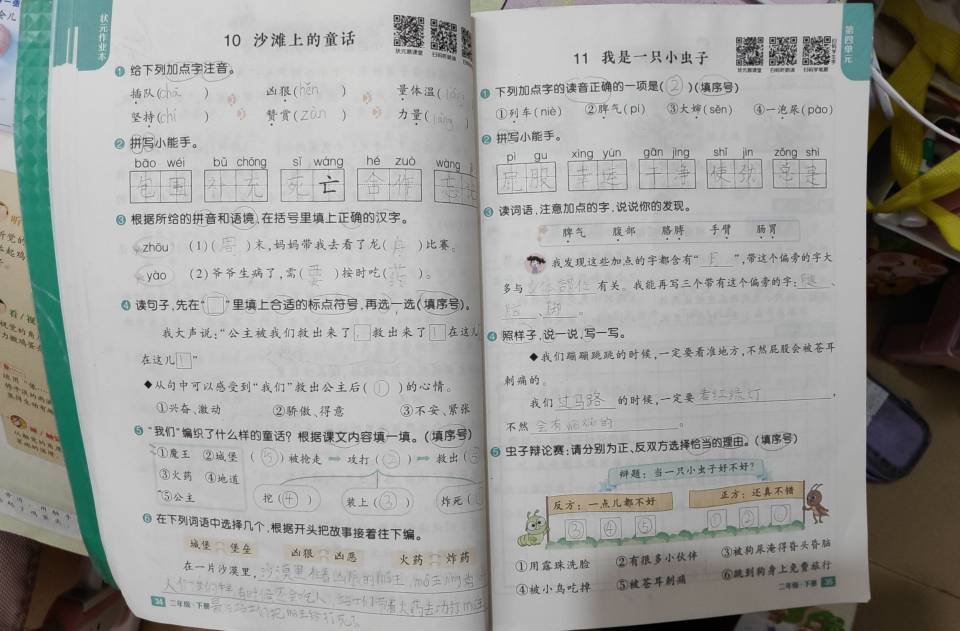 状元作业本
10 沙滩上的童话
1 给下列加点字注音。
插队(chā ) 凶狠(hěn ) 量体温(
坚持(chí ) 赞赏(zàn ) 力量(liàng )
2 拼写小能手。
bāo wéi bǔ chōng sǐ wáng hé zuò wàng
包围 补充 死亡 合作 忘
3 根据所给的拼音和语境,在括号里填上正确的汉字。
zhōu (1)(周)末,妈妈带我去看了龙(舟)比赛。
yào (2)爷爷生病了,需(要)按时吃(药)。
4 读句子,先在“ ”里填上合适的标点符号,再选一选(填序号)。
我大声说:“公主被我们救出来了 救出来了 在这儿
在这儿 ”
◆从句中可以感受到“我们”救出公主后(①)的心情。
①兴奋、激动 ②骄傲、得意 ③不安、紧张
5 “我们”编织了什么样的童话?根据课文内容填一填。(填序号)
①魔王 ②城堡 (⑤)被抢走 攻打(②) 救出(⑤
③火药 ④地道
⑤公主 挖(④) 装上(③) 炸死(
6 在下列词语中选择几个,根据开头把故事接着往下编。
城堡 堡垒 凶狠 凶恶 火药 炸药
在一片沙漠里,沙漠里住着凶狠的
34 二年级·下册
第四单元
11 我是一只小虫子
状元微课堂 扫码听朗读 扫码学笔顺
1 下列加点字的读音正确的一项是(②)(填序号)
①列车(niè) ②脾气(pí) ③大婶(sěn) ④一泡尿(pào)
2 拼写小能手。
pì gu xìng yùn gān jìng shǐ jìn zǒng shì
屁股 幸运 干净 使劲 总是
3 读词语,注意加点的字,说说你的发现。
脾气 腹部 胳膊 手臂 肠胃
我发现这些加点的字都含有“月”,带这个偏旁的字大
多与身体部位有关。我能再写三个带有这个偏旁的字:腿、
、脚。
4 照样子,说一说,写一写。
◆我们蹦蹦跳跳的时候,一定要看准地方,不然屁股会被苍耳
刺痛的。
我们过马路的时候,一定要看红绿灯,
不然会有危险的。
5 虫子辩论赛:请分别为正、反双方选择恰当的理由。(填序号)
辩题:当一只小虫子好不好?
反方:一点儿都不好 正方:还真不错
③ ④ ⑤ ① ② ⑥
①用露珠洗脸 ②有很多小伙伴 ③被狗尿淹得昏头昏脑
④被小鸟吃掉 ⑤被苍耳刺痛 ⑥跳到狗身上免费旅行
二年级·下册 35